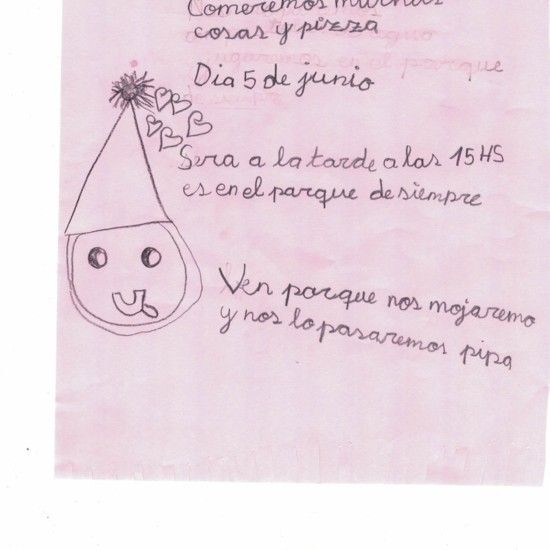 Comeremos muchas
cosas y pizza
Dia 5 de junio
Sera a la tarde a las 15 HS
es en el parque de siempre
Ven porque nos mojaremo
y nos lo pasaremos pipa